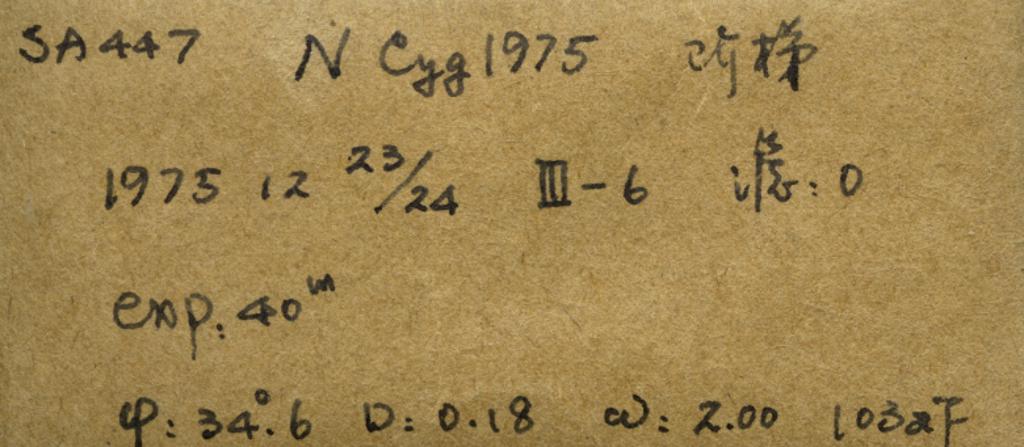 SA447 N Cyg 1975 阶梯
1975 12 23/24 III-6 滤: 0
exp. 40m
φ: 34°.6 D: 0.18 ω: 2.00 103aF